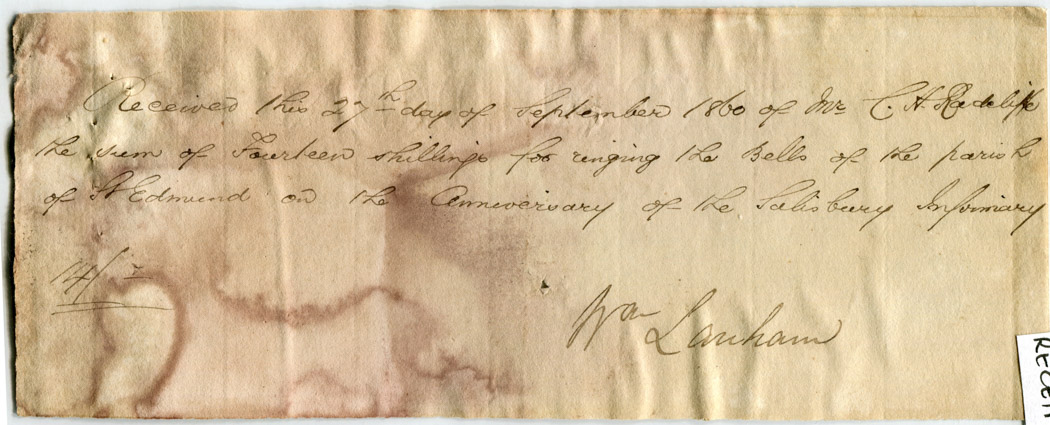 Received this 27th day of September 1860 of Mr C. H. Radcliffe
the sum of Fourteen shillings for ringing the Bells of the parish
of St Edmund on the Anniversary of the Salisbury Infirmary
14/-
Wm Lanham